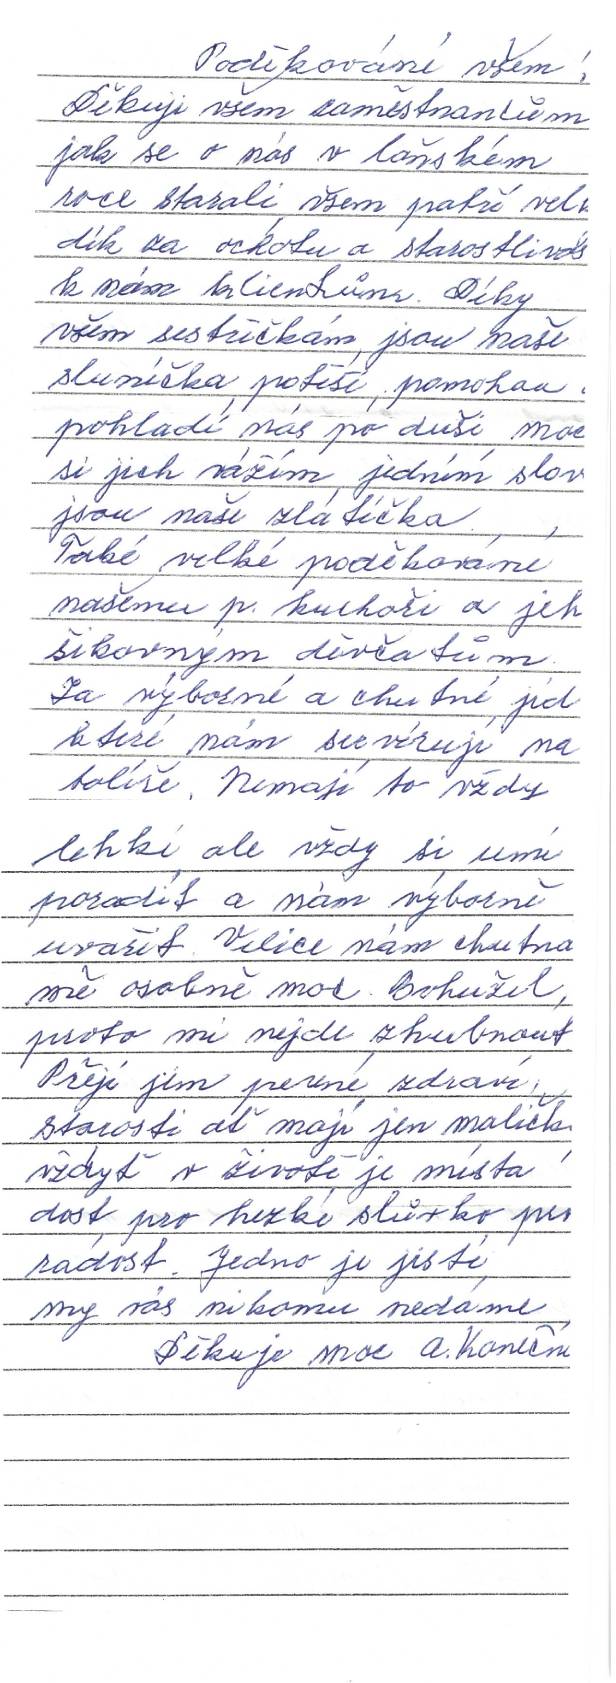 Poděkování všem!
Děkuji všem zaměstnancům
jak se o nás v loňském
roce starali, všem patří velk
dík za ochotu a starostlivos
k nám klientům. Díky
všem sestřičkám, jsou naše
sluníčka, potěší, pomohou
pohladí nás po duši moc
si jich vážím, jedním slov
jsou naše zlatíčka.
Také velké poděkování
našemu p. kuchaři a jeh
šikovným děvčatům.
Za výborné a chutné jíd
které nám servírují na
talíře. Nemají to vždy
lehké, ale vždy si umí
poradit a nám výborně
uvařit. Velice nám chutná
mě osobně moc. Bohužel,
proto mi nejde zhubnout
Přeji jim pevné zdraví,
starosti ať mají jen maličk
vždyť v životě je místa
dost, pro hezké slůvko pro
radost. Jedno je jisté,
my vás nikomu nedáme
Děkuje moc A. Konečn